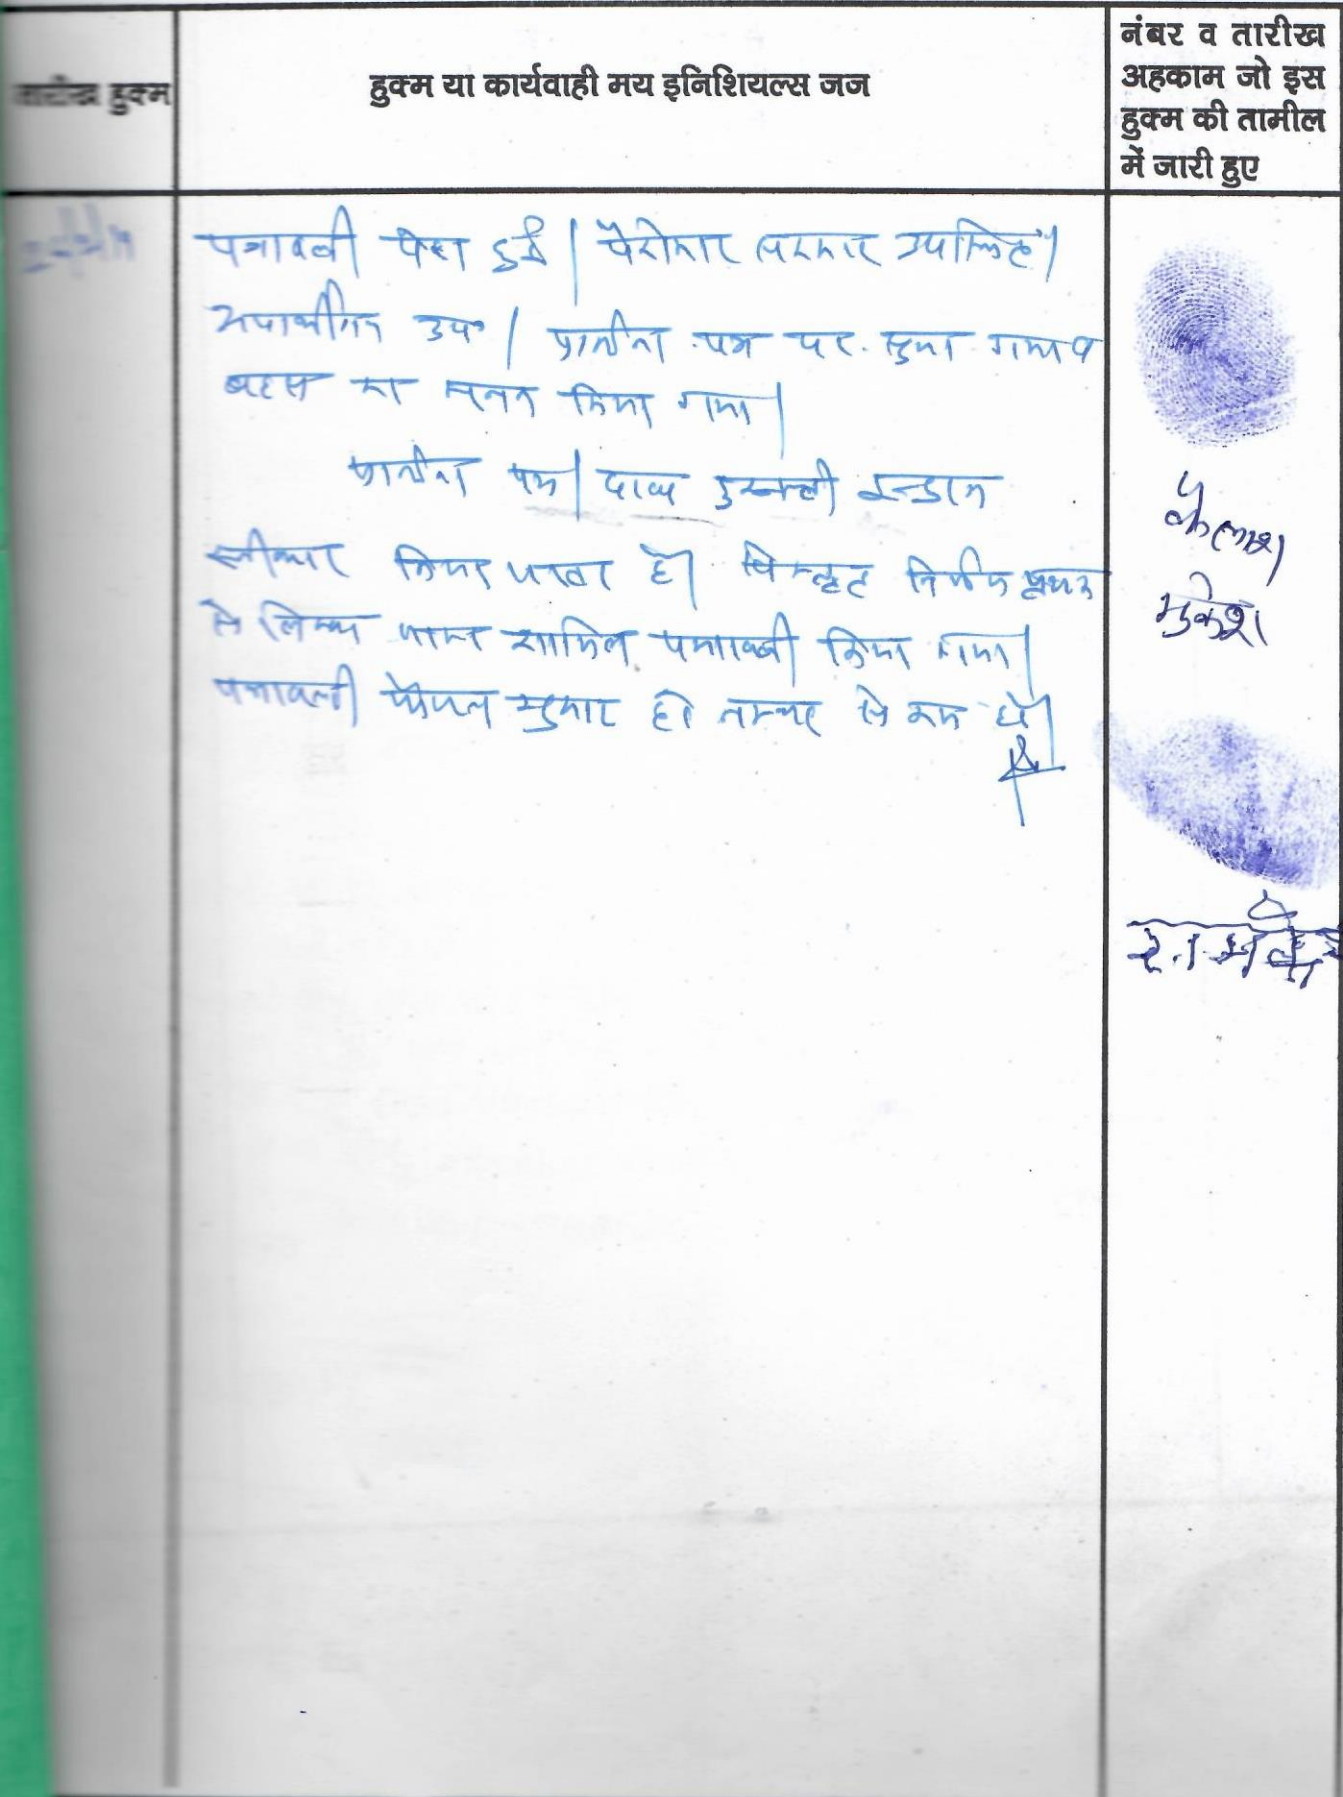 तारीख हुक्म
हुक्म या कार्यवाही मय इनिशियल्स जज
नंबर व तारीख
अहकाम जो इस
हुक्म की तामील
में जारी हुए
पत्रावली पेश हुई। पैरोकार सरकार उपस्थित।
उप०। प्रार्थना पत्र पर सुना गया व
बहस का मनन किया गया।
प्रार्थना पत्र। दावा दुरुस्ती इन्द्राज
स्वीकार किया जाता है। विस्तृत निर्णय पृथक
से लिखा जाकर शामिल पत्रावली किया गया।
पत्रावली फैसल शुमार हो नम्बर से कम हो।
कैलाश
मुकेश